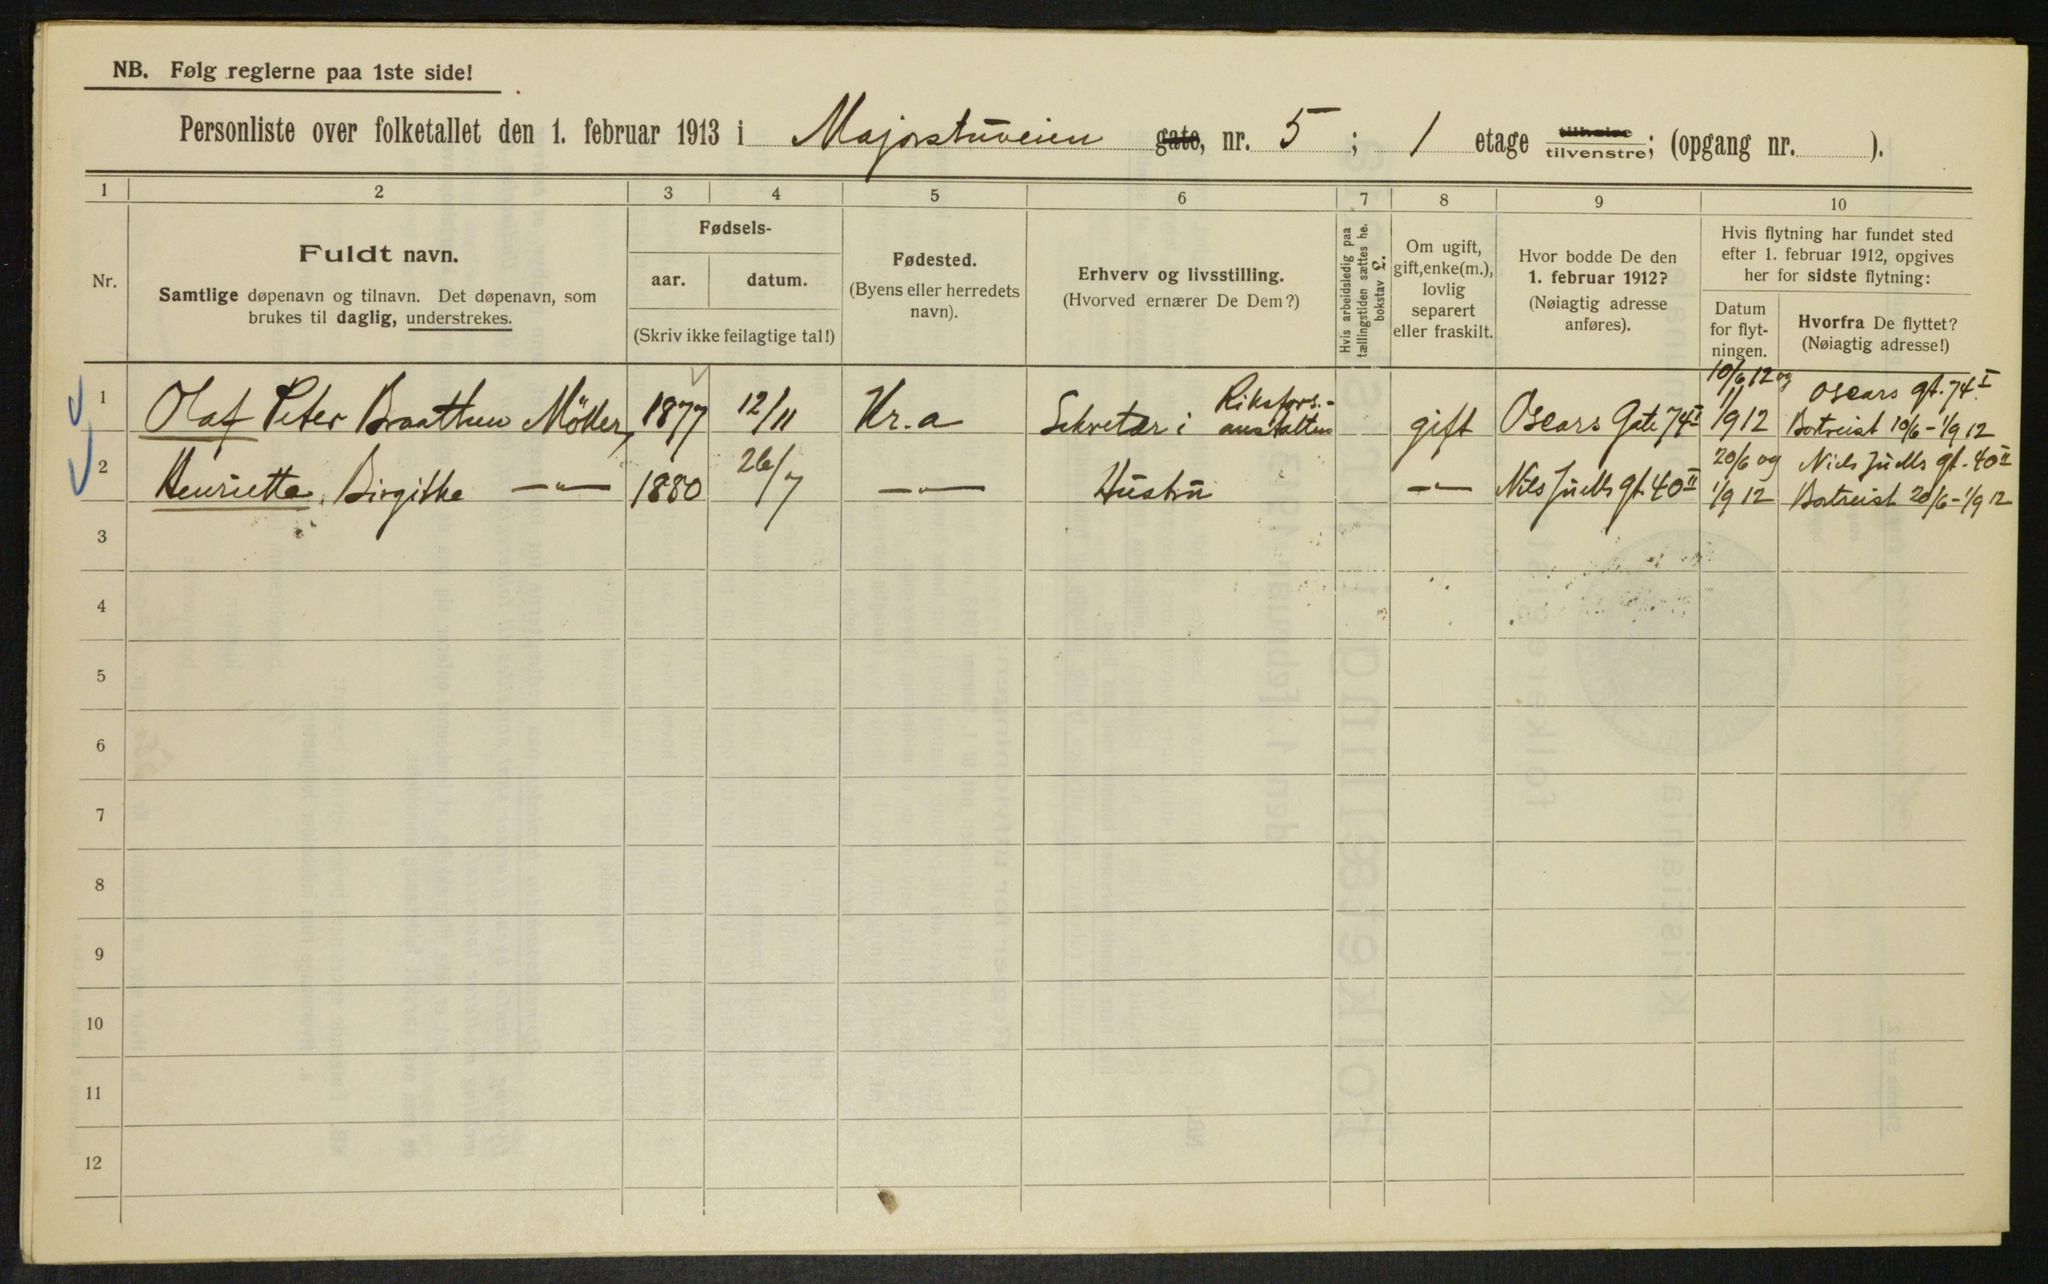 NB. Følg reglerne paa 1ste side!
Personliste over folketallet den 1. februar 1913 i Majorstuveien gate, nr. 5; 1 etage tilhøire tilvenstre; (opgang nr. ).
1 2 3 4 5 6 7 8 9 10
Nr.
Fuldt navn.
Samtlige døpenavn og tilnavn. Det døpenavn, som
brukes til daglig, understrekes.
Fødsels-
aar. datum.
(Skriv ikke feilagtige tal!)
Fødested.
(Byens eller herredets
navn).
Erhverv og livsstilling.
(Hvorved ernærer De Dem?)
Hvis arbeidsledig paa
tællingstiden sættes he.
bokstav L.
Om ugift,
gift, enke(m.),
lovlig
separert
eller fraskilt.
Hvor bodde De den
1. februar 1912?
(Nøiagtig adresse
anføres).
Hvis flytning har fundet sted
efter 1. februar 1912, opgives
her for sidste flytning:
Datum
for flyt-
ningen.
Hvorfra De flyttet?
(Nøiagtig adresse!)
1 Olaf Peter Braathen Möller, 1877 12/11 Kr.a Sekretær i Riksfors.-anstalten gift Oscars Gate 74 I 10/6 12 og 1/9 12 Oscars gt. 74 I. Bortreist 10/6 - 1/9 12
2 Henriette Birgithe —"— 1880 26/7 —"— Hustru —"— Nils Juells gt. 40 II 20/6 og 1/9 12 Niels Juells gt. 40 II Bortreist 20/6 - 1/9 12
3
4
5
6
7
8
9
10
11
12